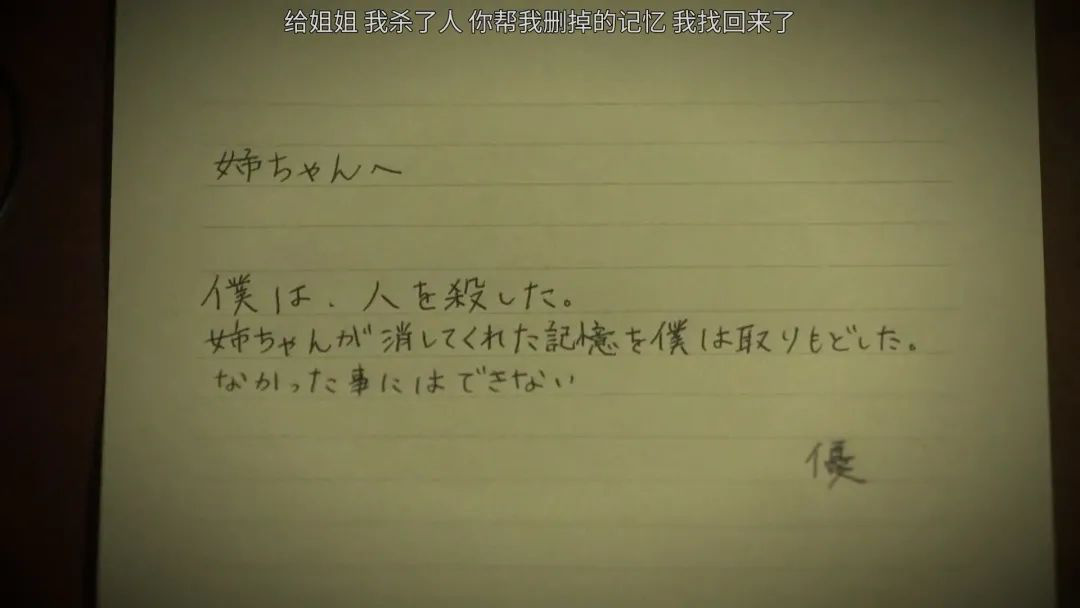 给姐姐 我杀了人 你帮我删掉的记忆 我找回来了
姉ちゃんへ
僕は、人を殺した。
姉ちゃんが消してくれた記憶を僕は取りもどした。
なかった事にはできない
優